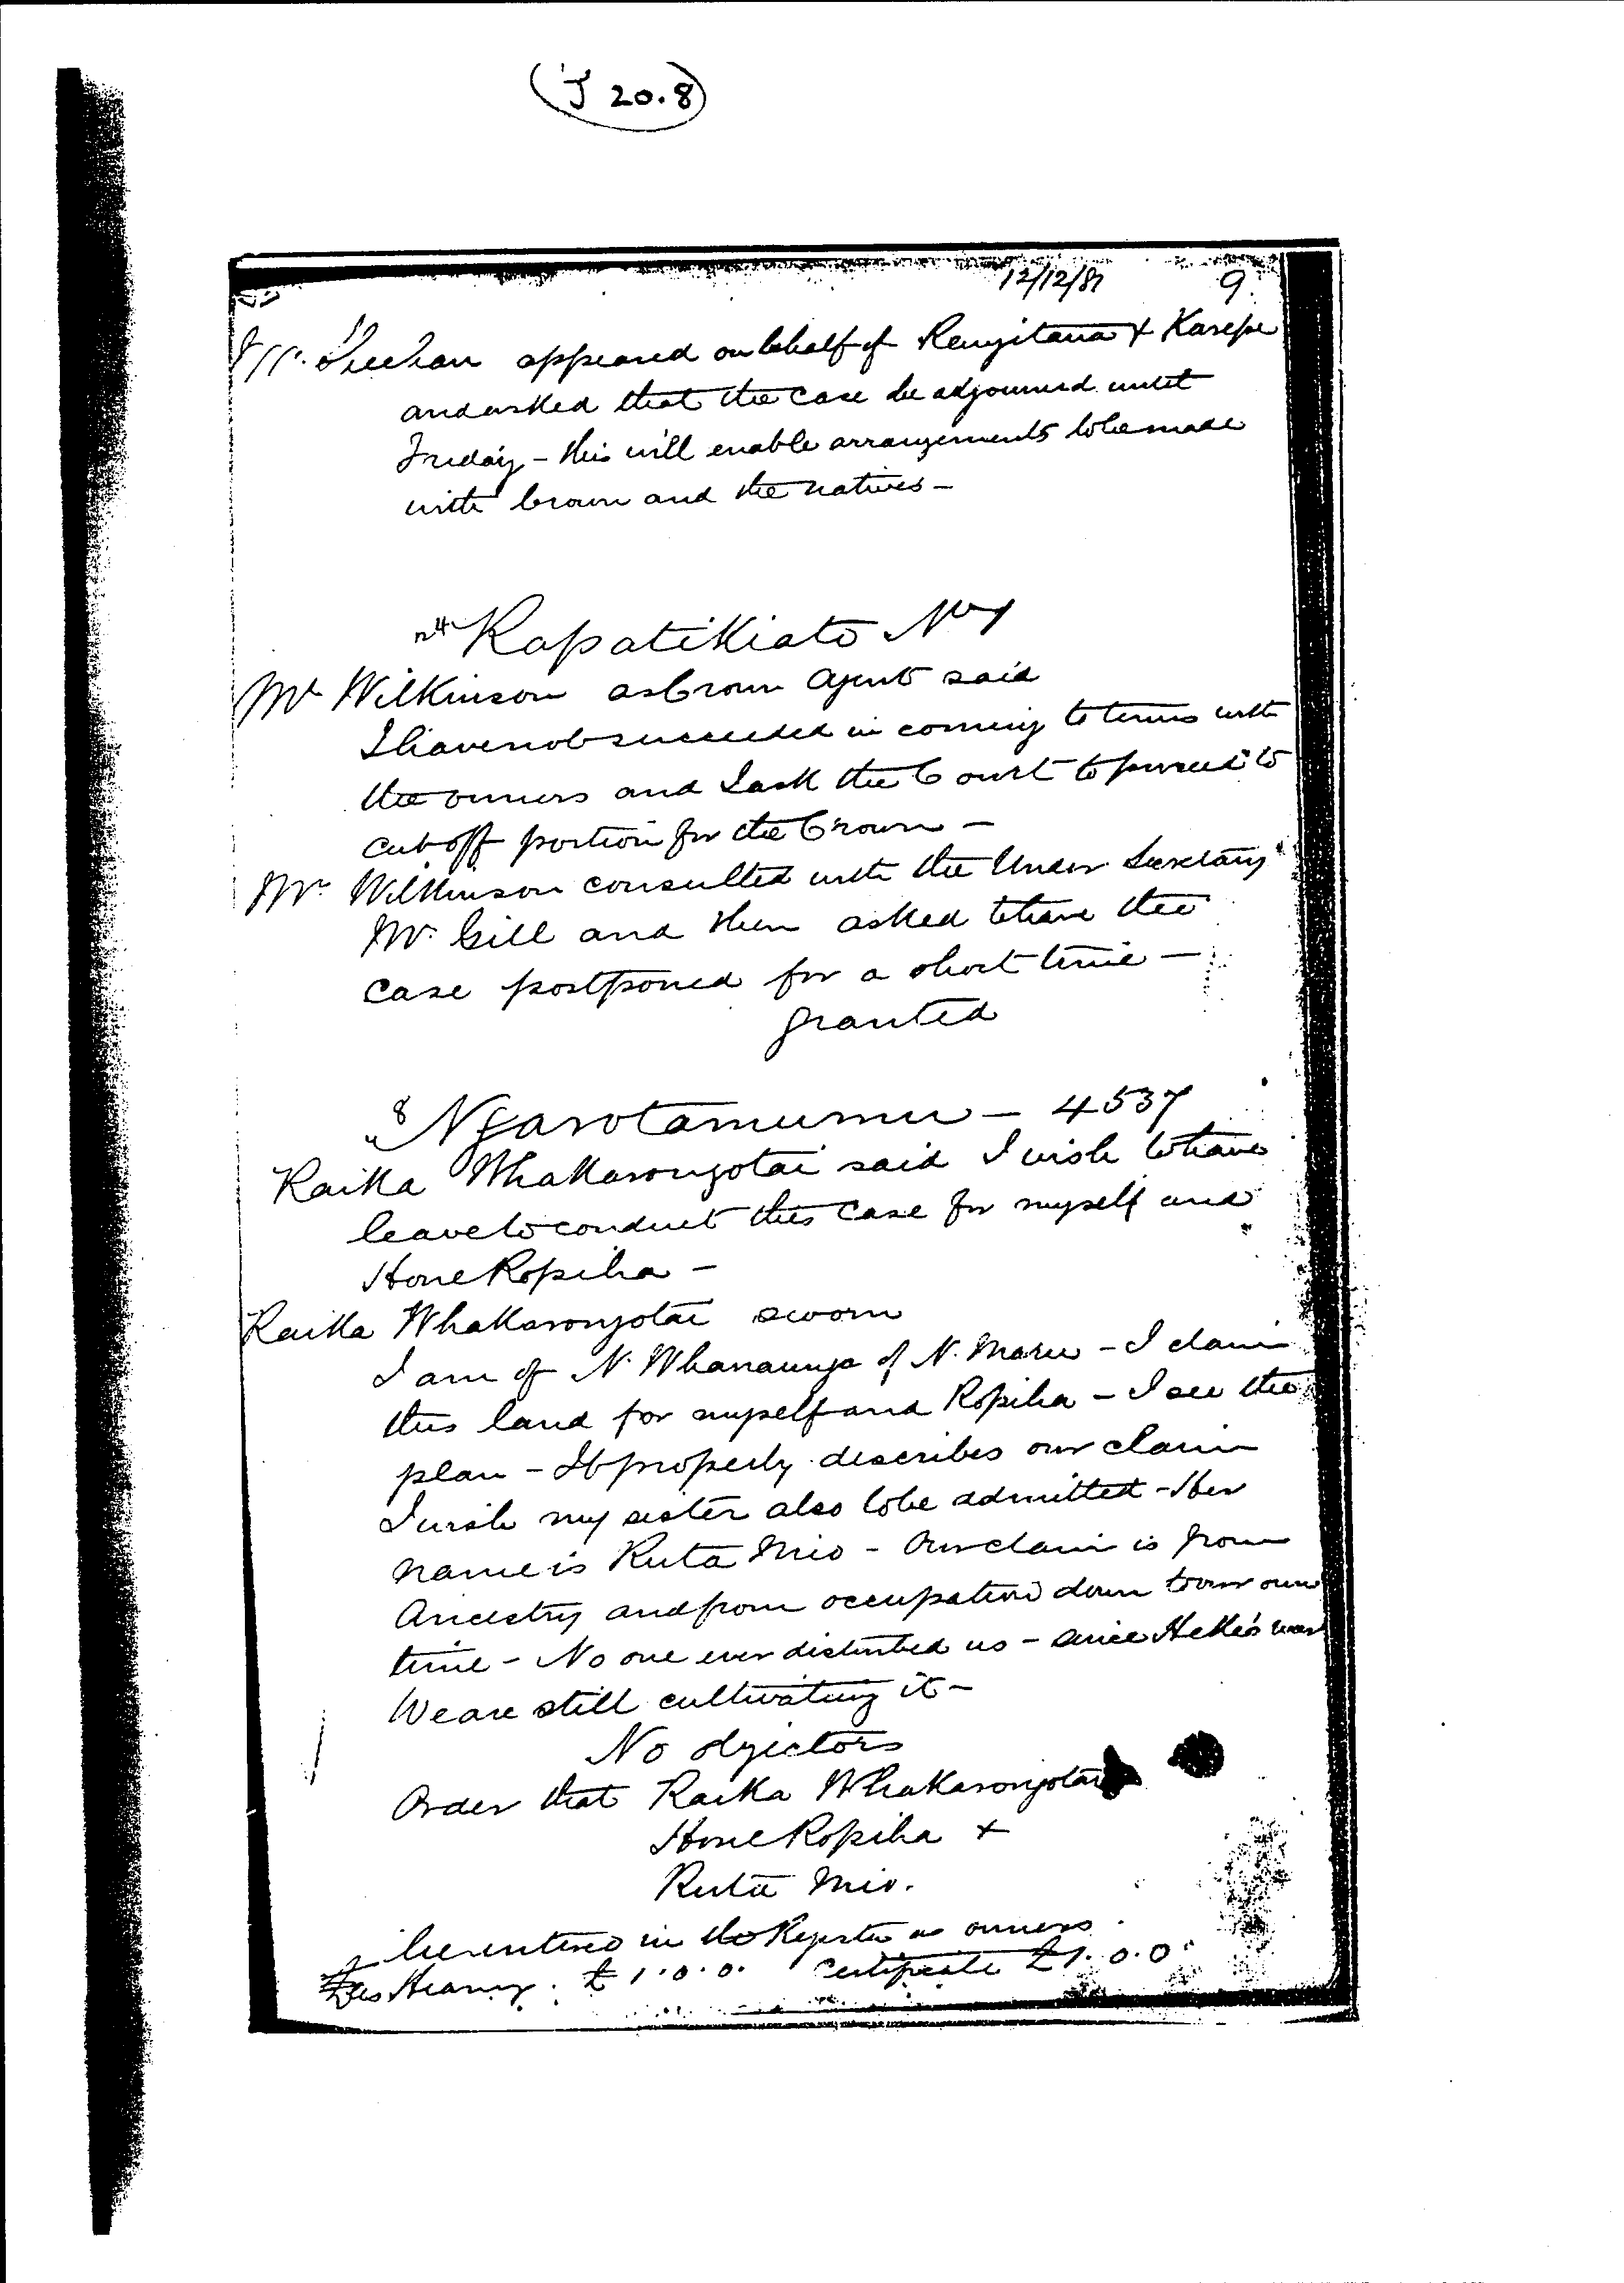 J 20.8
12/12/87 9
Mr. Sheehan appeared on behalf of Rengitana & Karepe
and asked that the case be adjourned until
Friday - this will enable arrangements to be made
with Crown and the natives -
Kapatikiato No 1
Mr Wilkinson as Crown Agent said
I have not succeeded in coming to terms with
the owners and I ask the Court to proceed to
cut off portion for the Crown -
Mr Wilkinson consulted with the Under Secretary
Mr. Gill and then asked to have the
case postponed for a short time -
granted
8 Ngarotamumu - 4537
Raika Whakarongotai said I wish to have
leave to conduct this case for myself and
Hone Ropiha -
Raika Whakarongotai sworn
I am of N. Whanaunga of N. Maru - I claim
this land for myself and Ropiha - I see the
plan - It properly describes our claim
I wish my sister also to be admitted - Her
name is Ruta Mio - Our claim is from
Ancestry and from occupation down to our own
time - No one ever disturbed us - since Heke's war
We are still cultivating it -
No objectors
Order that Raika Whakarongotai
Hone Ropiha &
Ruta Mio.
be entered in the Register as owners.
Hearing. £1.0.0. Certificate £1.0.0